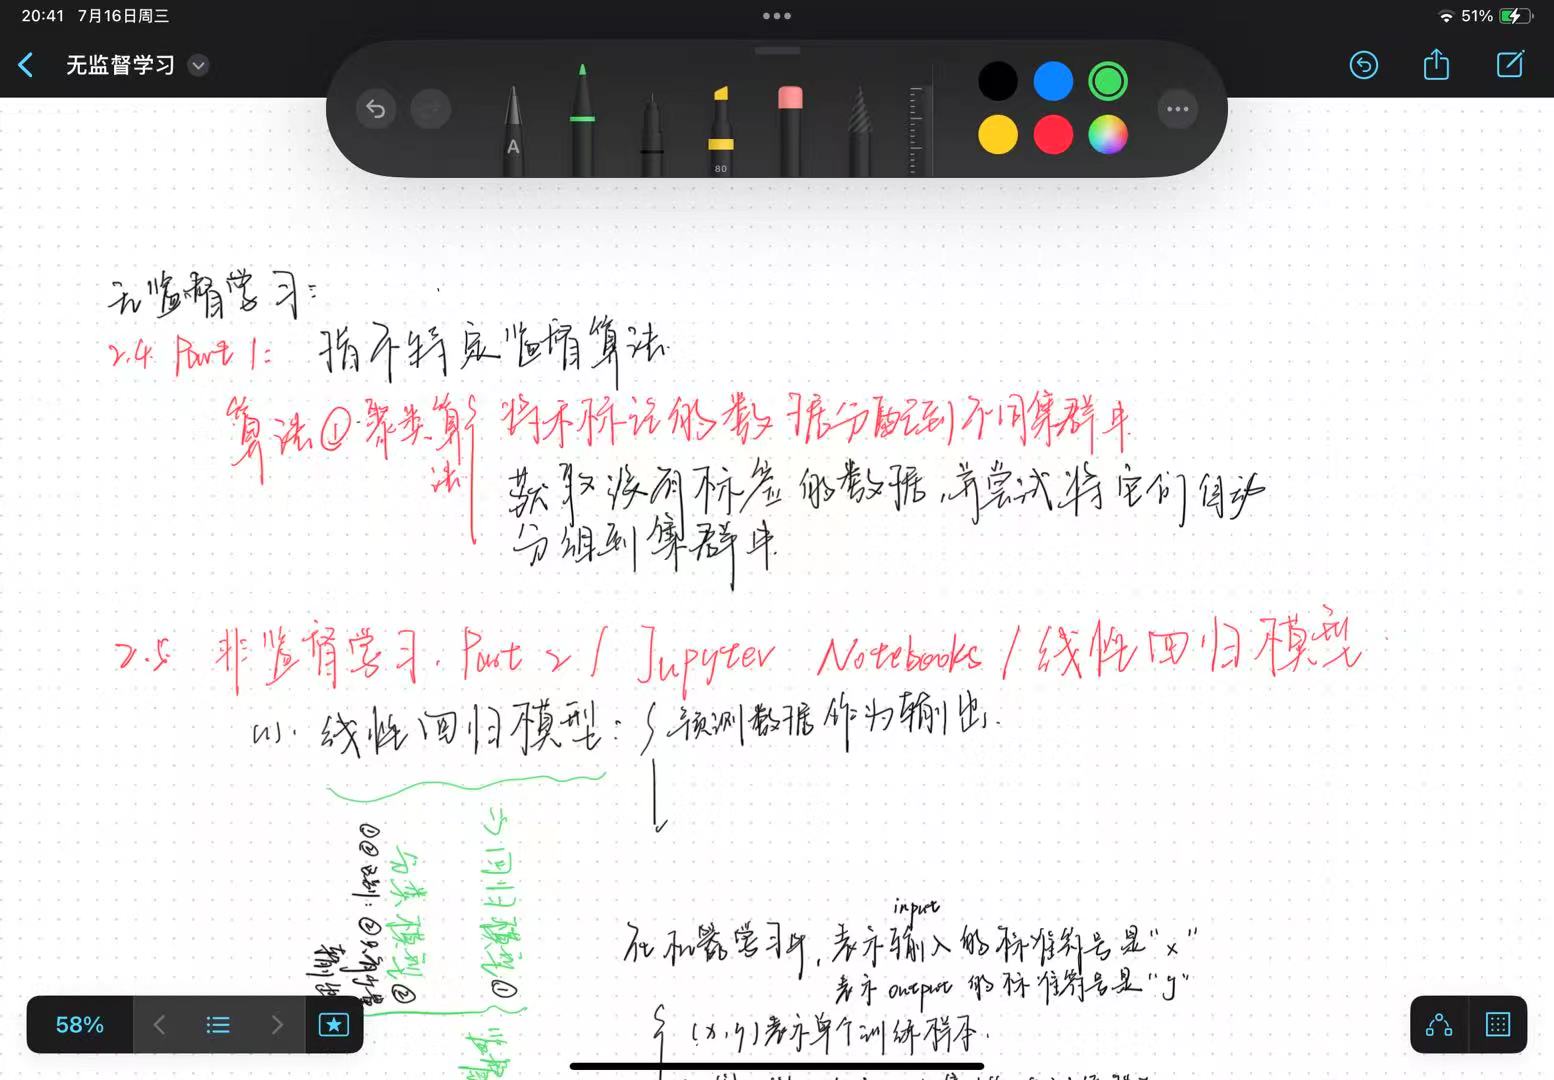 20:41 7月16日周三
51%
无监督学习
A
80
无监督学习:
2.4. Part 1: 指不特定监督算法.
算法① 聚类算法 { 将未标记的数据分配到不同集群中
获取没有标签的数据,并尝试将它们自动
分组到集群中
2.5 非监督学习. Part 2 / Jupyter Notebooks / 线性回归模型
(1). 线性回归模型: { 预测数据作为输出.
回归模型①
分类模型②
①② 区别: ②
输出
input
在机器学习中, 表示输入的标准符号是"x"
表示 output 的标准符号是"y"
{ (x,y)表示单个训练样本.
58%